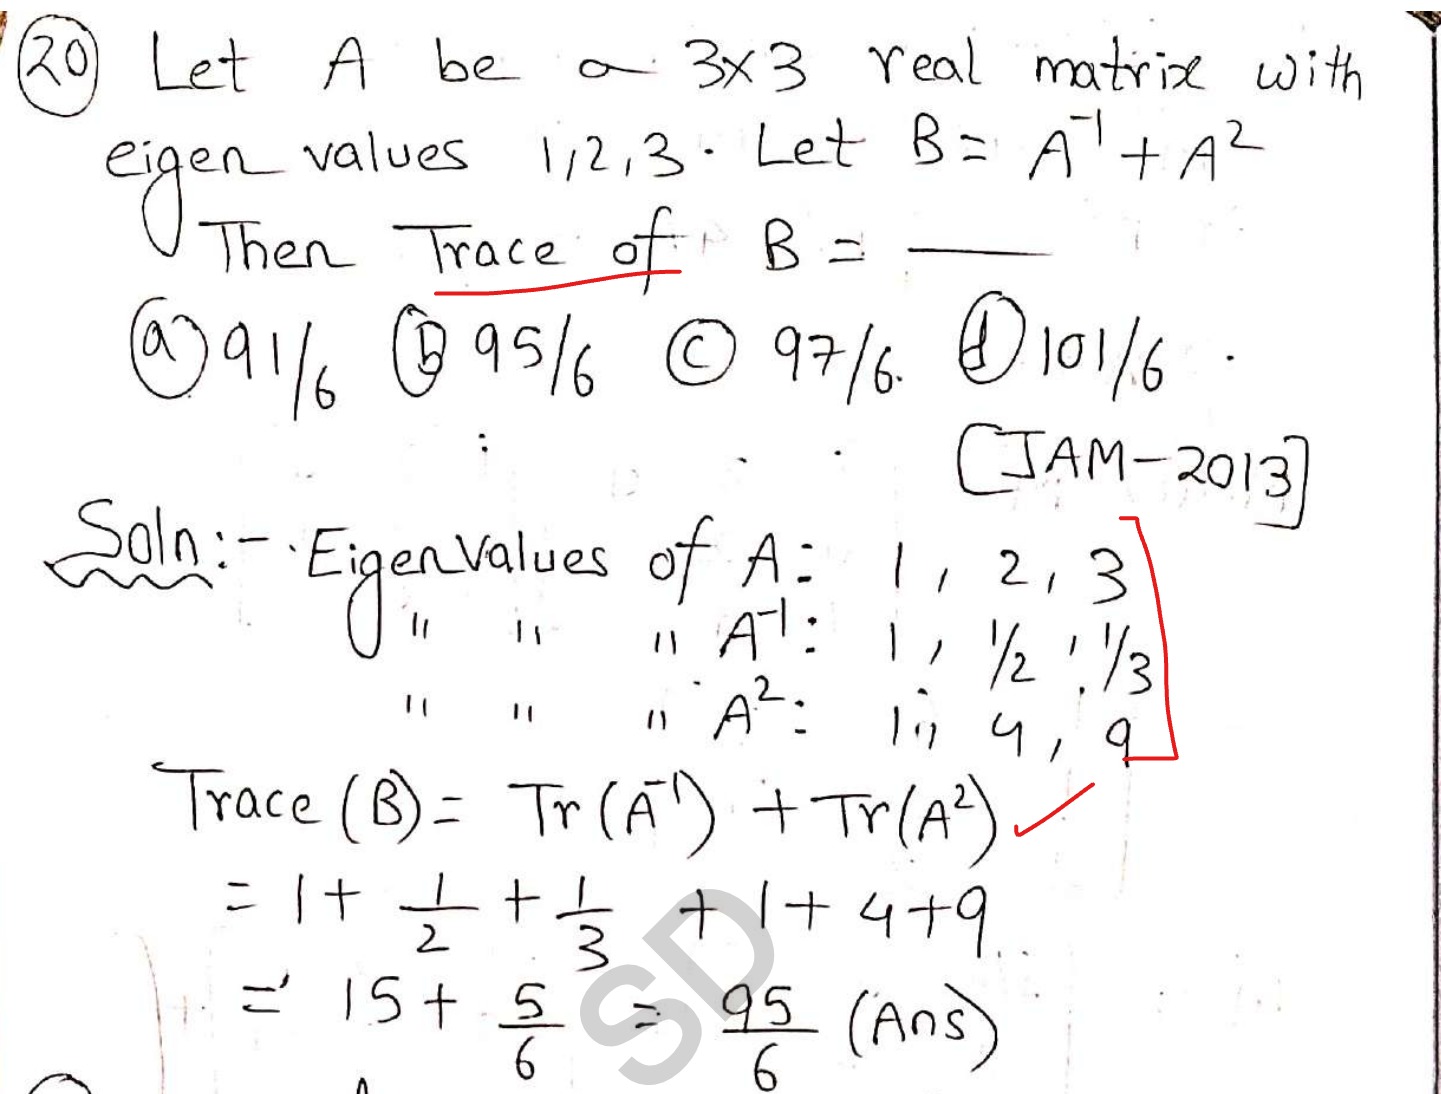 20 Let A be a 3×3 real matrix with
eigen values 1,2,3. Let B = A⁻¹ + A²
Then Trace of B = ____
(a) 91/6 (b) 95/6 (c) 97/6. (d) 101/6 .
[JAM-2013]
Soln:- Eigen Values of A: 1, 2, 3
" " " A⁻¹: 1, 1/2, 1/3
" " " A²: 1, 4, 9
Trace (B) = Tr (A⁻¹) + Tr(A²)
= 1 + 1/2 + 1/3 + 1 + 4 + 9
= 15 + 5/6 = 95/6 (Ans)
SD